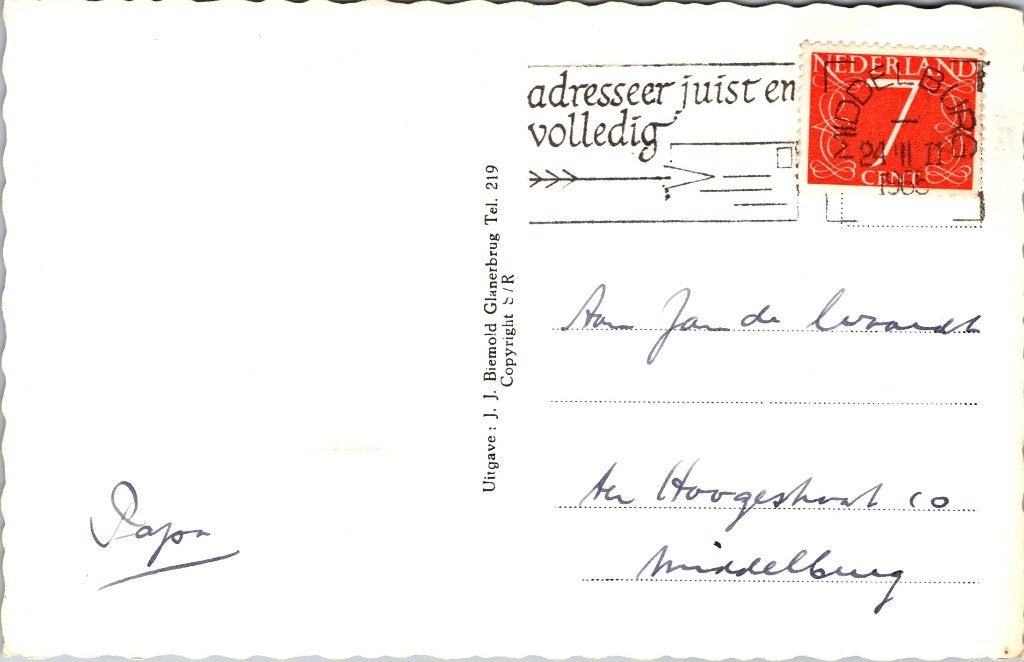 adresseer juist en
volledig
NEDERLAND
7
CENT
MIDDELBURG
1965
Uitgave : J. J. Biemold Glanerbrug Tel. 219
Copyright S/R
Aan Jan de
ter Hoogestraat 10
Middelburg
Papa